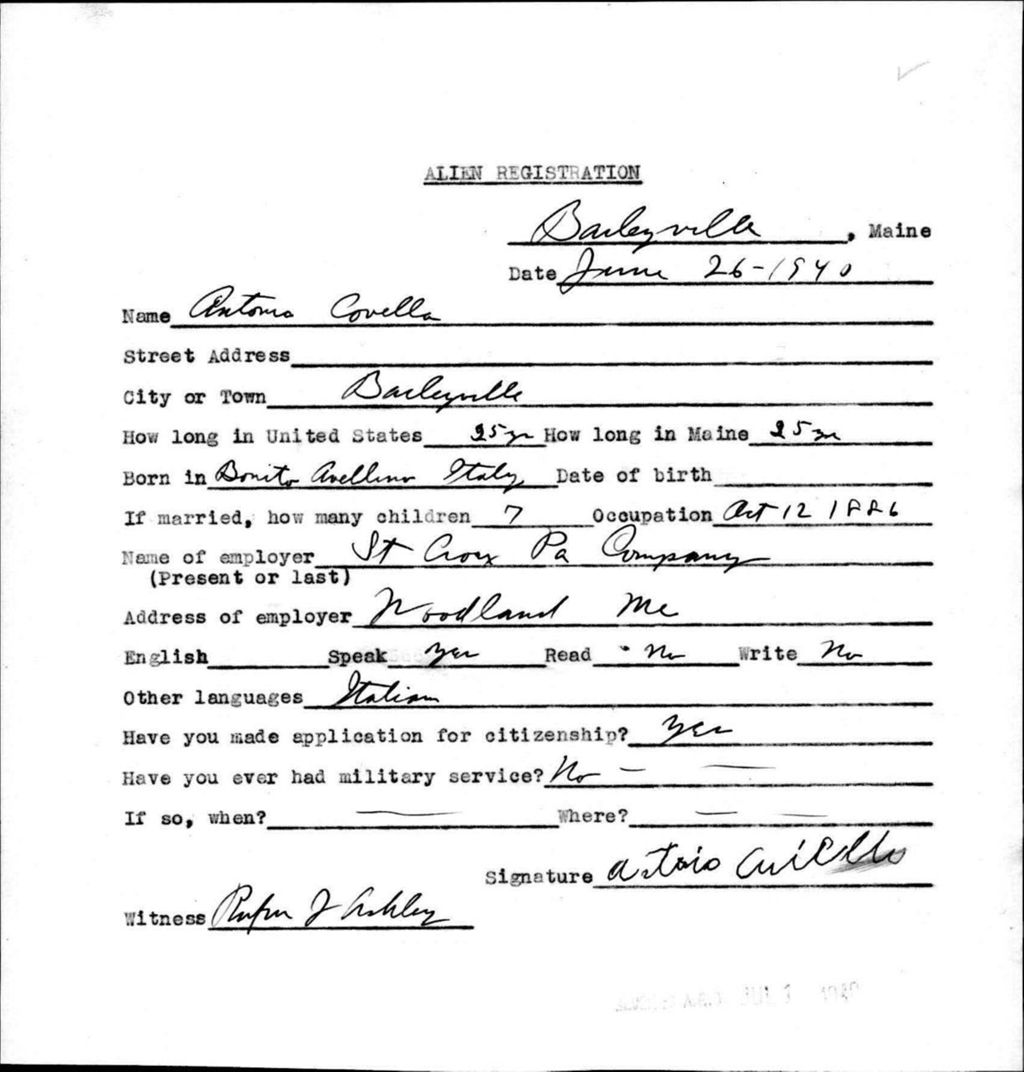 ALIEN REGISTRATION
Baileyville, Maine
Date June 26-1940
Name Antonio Covella
Street Address
City or Town Baileyville
How long in United States 25 yr How long in Maine 25 yr
Born in Bonito Avellino Italy Date of birth
If married, how many children 7 Occupation Oct 12 1886
Name of employer St Croix Pa Company
(Present or last)
Address of employer Woodland Me
English Speak yes Read No Write No
Other languages Italian
Have you made application for citizenship? Yes
Have you ever had military service? No —
If so, when? — Where? — —
Signature
Witness Rufus J Ashley
JUL 1940